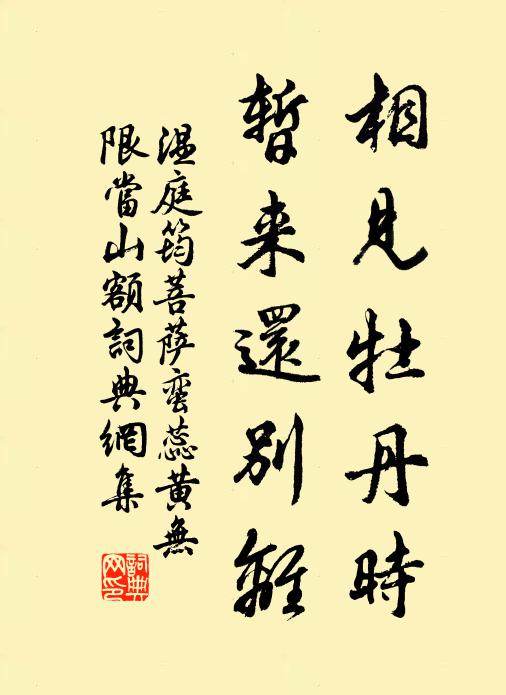 相見牡丹時
暫来還別離
温庭筠菩薩蠻蕊黄無
限當山額詞典網集
詞典
网印